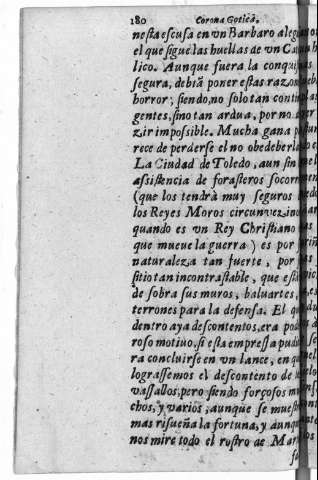 180 Corona Gotica.
nesta escusa en vn Barbaro aleg
el que sigue las huellas de vn Ca
lico. Aunque fuera la conqui
segura, debiã poner estas razo
horror; siendo, no solo tan conti
gentes, sino tan ardua, por no
zir impossible. Mucha gana p
rece de perderse el no obedeberl
La Ciudad de Toledo, aun sin
assistencia de forasteros socorr
(que los tendrà muy seguros
los Reyes Moros circunvezino
quando es vn Rey Christiano
que mueve la guerra) es por
naturaleza tan fuerte, por
sitio tan incontrastable, que est
de sobra sus muros, baluartes,
terrones para la defensa. El q
dentro aya descontentos, era pod
roso motiuo, si esta empressa pud
ra concluirse en vn lance, en q
lograssemos el descontento de
vassallos, pero siendo forçosos m
chos, y varios, aunque se muest
mas risueña la fortuna, y aunq
nos mire todo el rostro de Mar